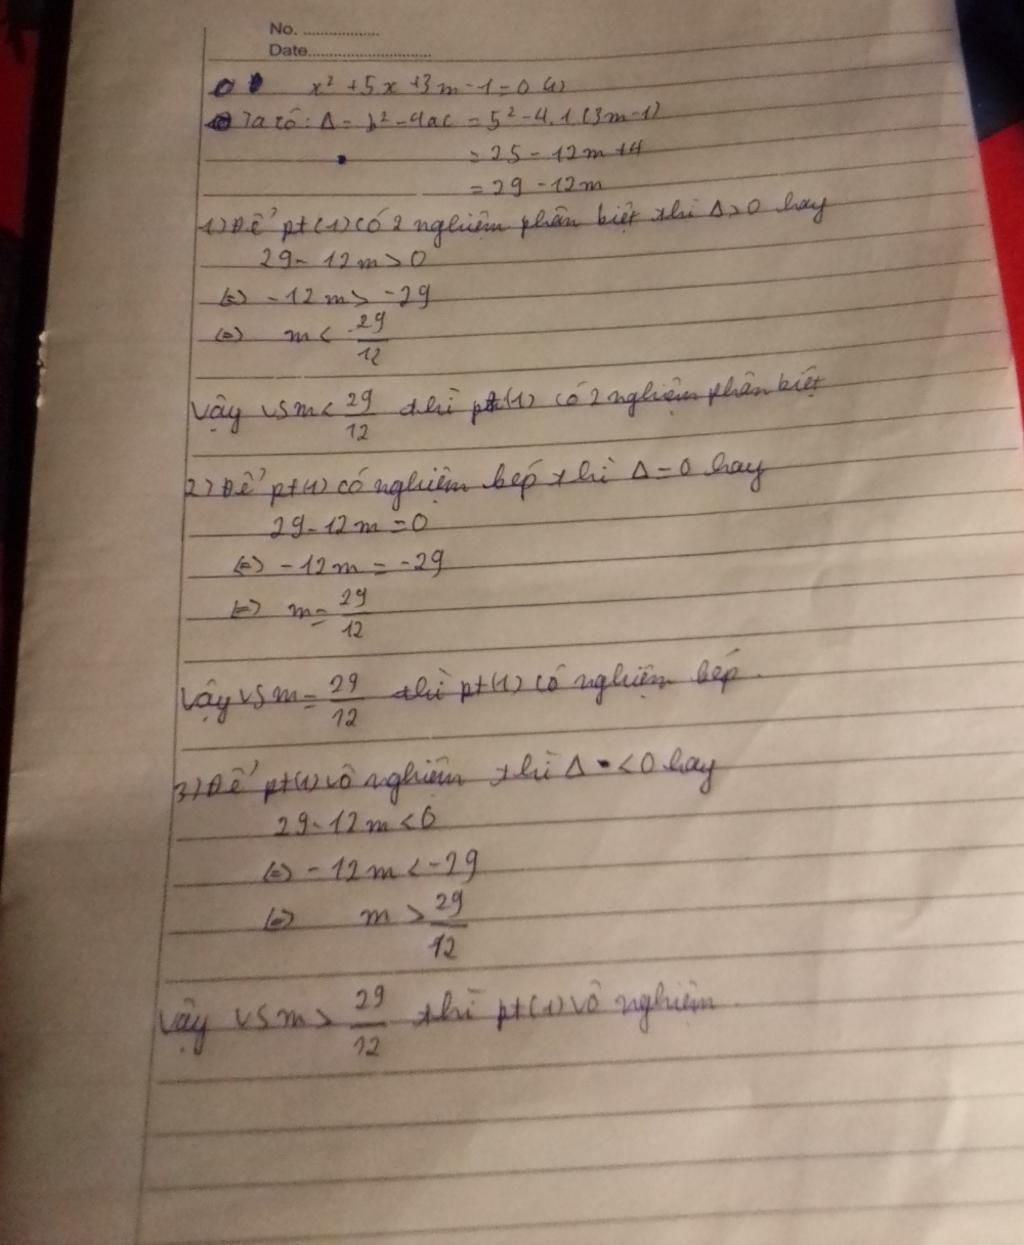 No. ..................
Date..............................
x² + 5x + 3m - 1 = 0 (1)
Ta có: Δ = b² - 4ac = 5² - 4.1(3m-1)
= 25 - 12m + 4
= 29 - 12m
1) Để pt(1) có 2 nghiệm phân biệt thì Δ > 0 hay
29 - 12m > 0
(=) -12m > -29
(=) m < 29/12
Vậy vs m < 29/12 thì pt(1) có 2 nghiệm phân biệt
2) Để pt(1) có nghiệm kép thì Δ = 0 hay
29 - 12m = 0
(=) -12m = -29
(=) m = 29/12
Vậy vs m = 29/12 thì pt(1) có nghiệm kép.
3) Để pt(1) vô nghiệm thì Δ < 0 hay
29 - 12m < 0
(=) -12m < -29
(=) m > 29/12
Vậy vs m > 29/12 thì pt(1) vô nghiệm.